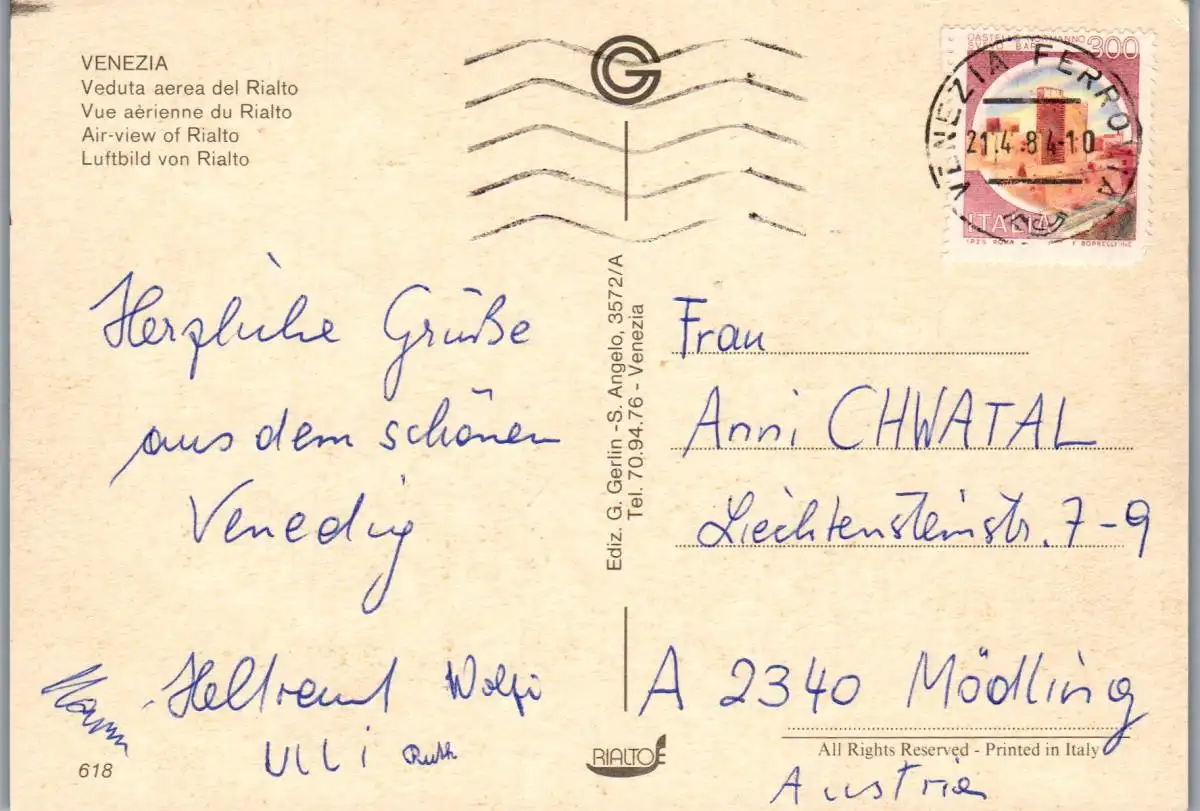 VENEZIA
Veduta aerea del Rialto
Vue aèrienne du Rialto
Air-view of Rialto
Luftbild von Rialto
CASTELLO NORMANNO
SVEVO BARI
300
ITALIA
I.P.Z.S. ROMA
VENEZIA FERROVIA
21.4.84-10
Herzliche Grüße
aus dem schönen
Venedig
Heltraud Wolfi
ULLi Ruth
618
Ediz. G. Gerlin -S. Angelo, 3572/A
Tel. 70.94.76 - Venezia
Frau
Anni CHWATAL
Liechtensteinstr. 7-9
A 2340 Mödling
RIALTO
All Rights Reserved - Printed in Italy
Austria